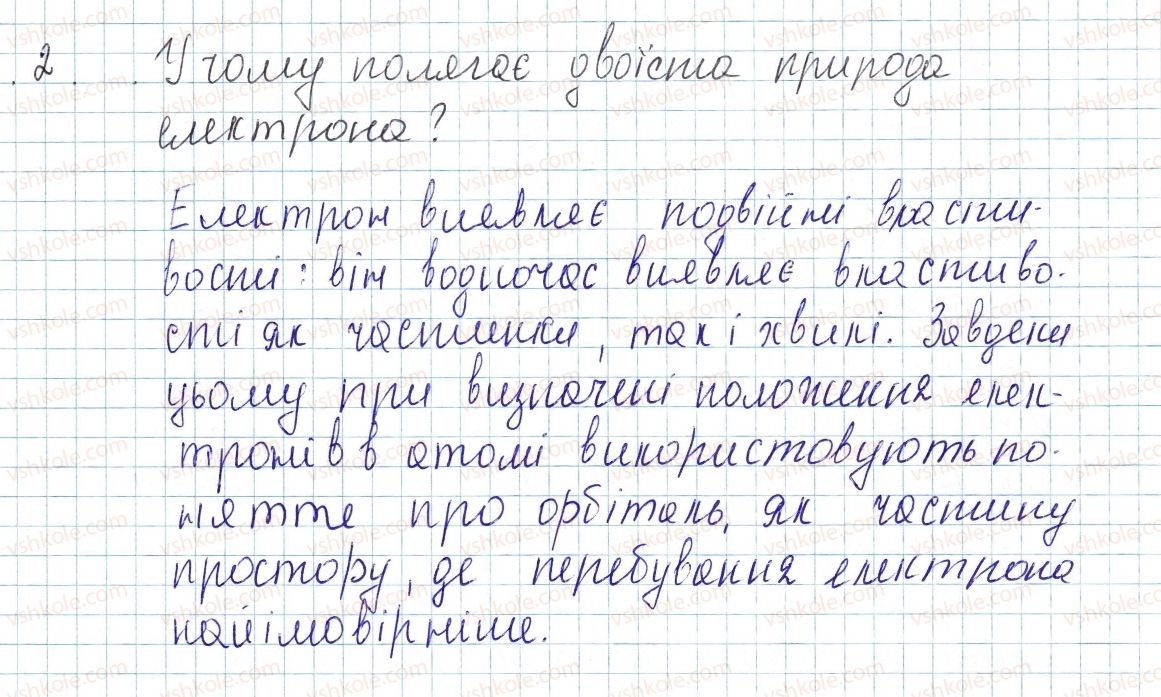 2. У чому полягає двоїста природа
електрона?
Електрон виявляє подвійні власти-
вості: він водночас виявляє властиво-
сті як частинки, так і хвилі. Завдяки
цьому при визначені положення елек-
тронів в атомі використовують по-
няття про орбіталь, як частину
простору, де перебування електрона
найімовірніше.